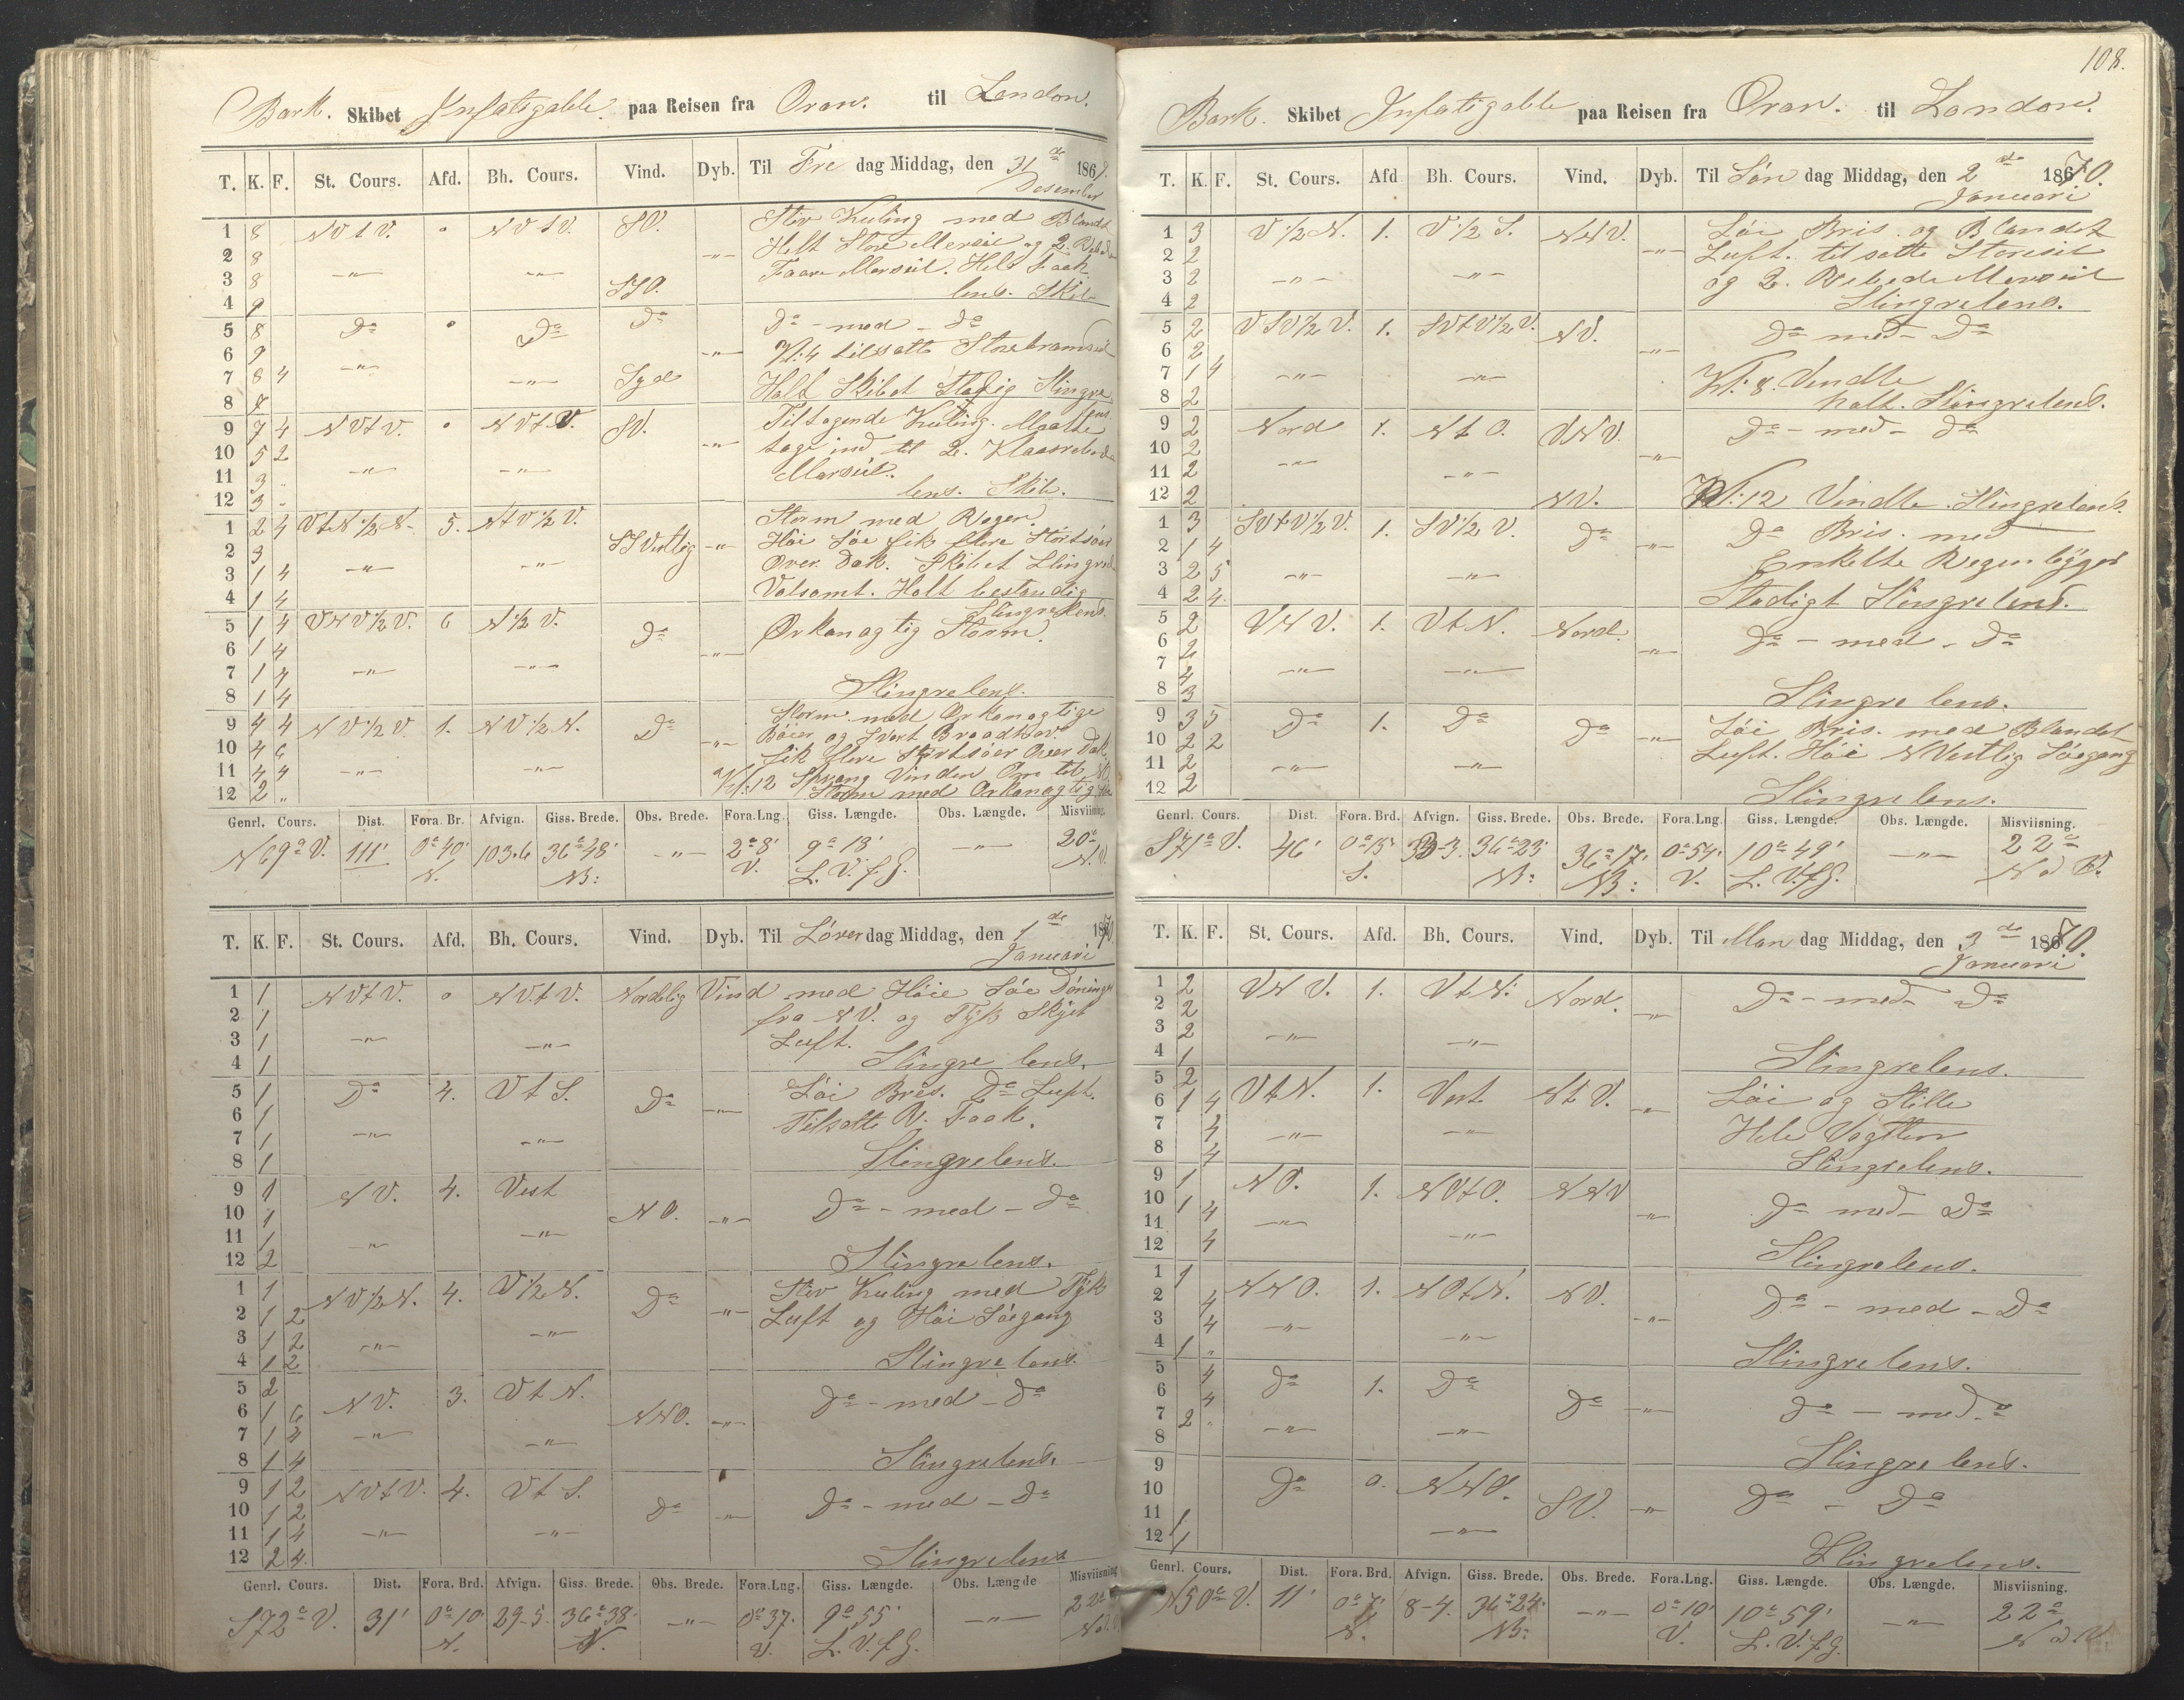 Bark. Skibet Infatigable. paa Reisen fra Oran. til London.
T. K. F. St. Cours. Afd. Bh. Cours. Vind. Dyb. Til Fre dag Middag, den 31 de 1869.
Desember
1 8 NVtV. 0 NVtV. SV. Stiv Kuling med Blandt
2 8 —"— Helt Store Merseil og 2. Rebede
3 8 —"— —"— Faare Merseil. Helt Faak
4 9 SSO. lens. Skib
5 8 Do 0 Do Do Do - med - Do
6 9 —"— Kl: 4 tilsatte Storebramseil
7 8 4 —"— —"— Syd Holt Skibet Stadig Slingre
8 8 lens.
9 7 4 NVtV. 0 NVtV. SV. Tiltagende Kuling. Maatte
10 5 2 —"— tage ind til 2. Klaasrebede
11 3 „ —"— —"— Merseil.
12 3 „ lens. Skib.
1 2 4 VtN½N. 5. NtV½V. Storm med Regen.
2 3 SSVestlig —"— Høi Søe fik flere Stortsøer
3 1 4 —"— —"— Over Dæk. Skibet Slingred
4 1 4 Volsomt. Holt bestandig
Slingrelens.
5 1 4 VNV½V. 6 N½V. Do Orkanagtig Storm.
6 1 4 —"—
7 1 4 —"— —"—
8 1 4 Slingrelens.
9 4 4 NV½V. 1. NV½N. Do Storm med Orkanagtige
10 4 6 —"— Bøier og Svert Braadtsøe.
11 4 4 —"— —"— fik flere Stortsøer Over Dæk
12 2 „ Kl: 12 Sprang Vinden Om til NV.
Storm med Orkanagtig
Genrl. Cours. Dist. Fora. Br. Afvign. Giss. Brede. Obs. Brede. Fora.Lng. Giss. Længde. Obs. Længde. Misviisning.
N69°V. 111' 0°40' 103.6 36°48' —"— 2°8' 9°18' —"— 20°
N. NB: V. L. V. f G. N. V.
T. K. F. St. Cours. Afd. Bh. Cours. Vind. Dyb. Til Løverdag Middag, den 1 de 1870.
Januari
1 1 NVtV. 0 NVtV. Nordelig Vind med Høie Søe Døninger
2 1 fra NV. og Tyk Skyet
3 1 —"— —"— Luft.
4 1 Slingre lens.
5 1 Do 4. VtS. Do —"— Løi Bris. Do Luft.
6 1 Tilsatte R. Faak.
7 1 —"— —"—
8 1 Slingrelens.
9 1 NV. 4. Vest NO. —"— Do - med - Do
10 1
11 1 —"— —"—
12 2 Slingrelens.
1 1 NV½N. 4. V½N. Do —"— Stiv Kuling med Tyk
2 1 2 Luft og Høi Søegang
3 1 2 —"— —"—
4 1 2 Slingrelens.
5 2 NV. 3. VtN. NNO. —"— Do - med - Do
6 1 6
7 1 4 —"— —"—
8 1 4 Slingrelens.
9 1 2 NVtV. 4. VtS. Do —"— Do - med - Do
10 1 2
11 1 4 —"— —"—
12 2 4. Slingrelens
Genrl. Cours. Dist. Fora. Brd. Afvign. Giss. Brede. Obs. Brede. Fora.Lng. Giss. Længde. Obs. Længde Misviisning
S72°V. 31' 0°10' 29-5. 36°38' —"— 0°37' 9°55' —"— 22°
N. N. V. L. V. f G.
108.
Bark. Skibet Infatigable paa Reisen fra Oran. til London.
T. K. F. St. Cours. Afd Bh. Cours. Vind. Dyb. Til Søn dag Middag, den 2 de 1870.
Januari
1 3 V½N. 1. V½S. NNV. —"— Løi Bris. og Blandet
2 2 Luft. tilsatte Storeseil
3 2 —"— —"— og 2. Rebede Merseil
4 2 Slingrelens.
5 2 VSV½V. 1. SVtV½V. NV. —"— Do - med - Do
6 2
7 1 4 —"— —"— Kl: 8. Vendte
8 2 holt. Slingrelens.
9 2 Nord 1. NtO. VNV. —"— Do - med - Do
10 2
11 2 —"— —"—
12 2 NV. Kl: 12 Vindte. Slingrelens.
1 3 SVtV½V. 1. SV½V. Do —"— Do Bris. med
2 1 4 Enkelte Regenbygger
3 2 5 —"— —"—
4 2 4. Stadigt Slingrelens.
5 2 VNV. 1. VtN. Nord. —"— Do - med - Do
6 2
7 4 —"— —"—
8 3 Slingre lens.
9 3 5 Do 1. Do Do —"— Løi Bris. med Blandet
10 2 2 Luft. Høi NVestlig Søegang
11 2 —"— —"—
12 2 Slingrelens.
Genrl. Cours. Dist. Fora. Brd. Afvign. Giss. Brede. Obs. Brede. Fora.Lng. Giss. Længde. Obs. Længde. Misviisning.
S71°V. 46' 0°15' 33-3. 36°23' 36°17' 0°54' 10°49' —"— 22°
S. NB: NB: V. L. V. f G.
T. K. F. St. Cours. Afd. Bh. Cours. Vind. Dyb. Til Man dag Middag, den 3 de 1870.
Januari
1 2 VNV. 1. VtN. Nord. —"— Do - med - Do
2 2
3 2 —"— —"—
4 1 Slingrelens.
5 2 VtN. 1. Vest NtV. —"— Løi og Stille
6 1 4
7 4 —"— —"— Hele Vagten
8 4 Slingrelens.
9 1 NO. 1. NOtO. NNV —"— Do - med - Do
10 1 4
11 —"— —"—
12 4 Slingrelens.
1 1 NNO. 1. NOtN. NV. —"— Do - med - Do
2 4
3 4 —"— —"—
4 1 „ Slingrelens.
5 4 Do 1. Do Do —"— Do - med - Do
6 4
7 2 „ —"— —"—
8 Slingrelens.
9 Do 0. NNO. SV. —"— Do - Do
10
11 1 —"—
12 1 Slingrelens.
Genrl. Cours. Dist. Fora. Brd. Afvign. Giss. Brede. Obs. Brede. Fora.Lng. Giss. Længde. Obs. Længde. Misviisning.
N50°V. 11' 0°7' 8-4. 36°24' —"— 0°10' 10°59' —"— 22°
N. NB: V. L. V. f G.